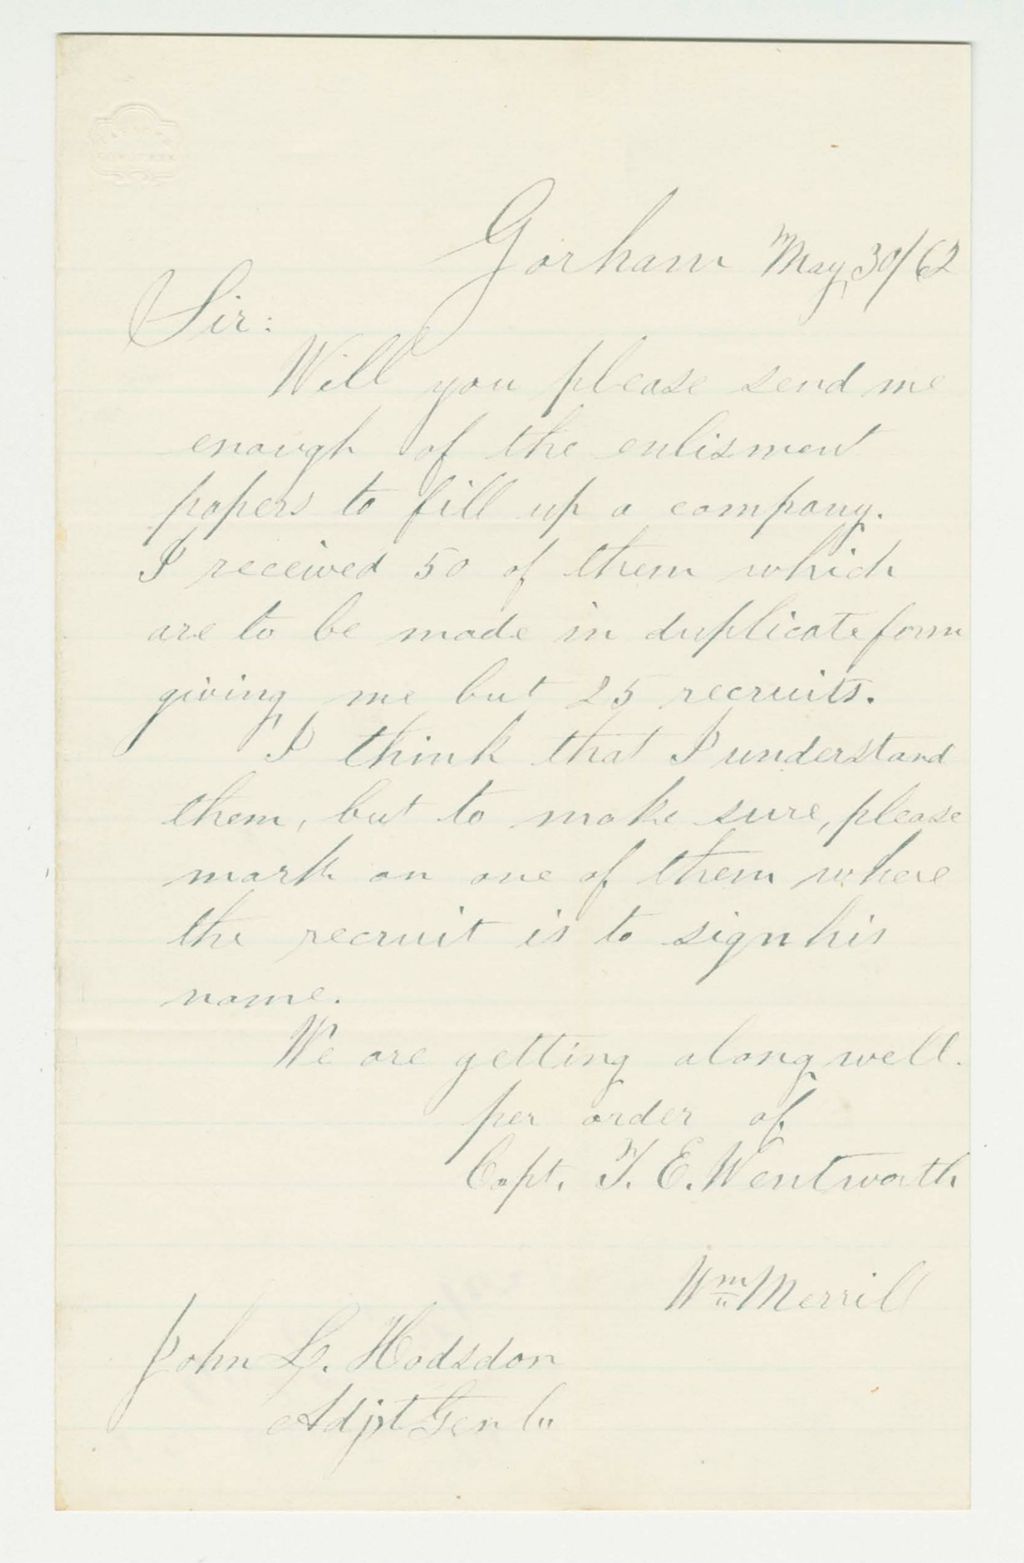 Gorham May, 30/62
Sir:
Will you please send me
enough of the enlisment
papers to fill up a company.
I received 50 of them which
are to be made in duplicate form
giving me but 25 recruits.
I think that I understand
them, but to make sure, please
mark on one of them where
the recruit is to sign his
name.
We are getting along well.
per order of
Capt. T. E. Wentworth
Wm Merrill
John L. Hodsdon
Adjt Genl